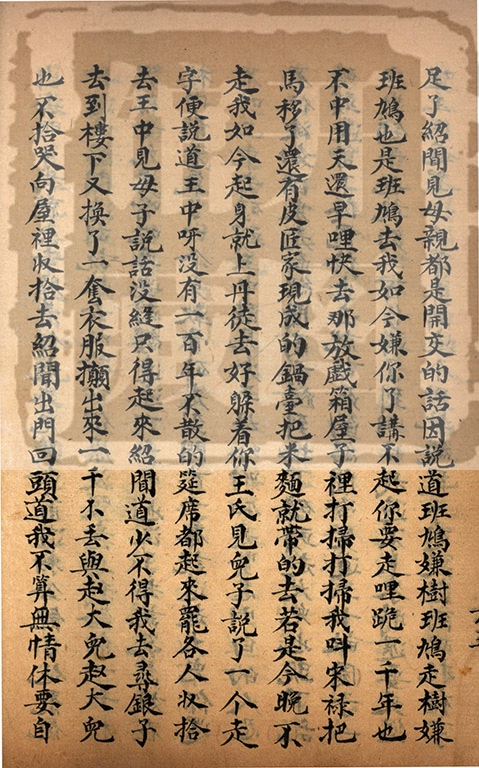 足了紹聞見母親都是開交的話因説道班鳩嫌樹班鳩走樹嫌
班鳩也是班鳩去我如今嫌你了講不起你要走哩跪一千年也
不中用天還早哩快去那放戲箱屋子裡打掃打掃我呌宋禄把
馬移了還有皮匠家現成的鍋臺把米麵就带的去若是今晚不
走我如今起身就上丹徒去好躲着你王氏見兒子説了一个走
字便説道王中呀没有一百年不散的筵席都起來罷各人収拾
去王中見母子説話没縫只得起來紹聞道少不得我去尋銀子
去到樓下又換了一套衣服攧出來一千不丢與赵大兒赵大兒
也不拾哭向屋裡収拾去紹聞出門回頭道我不算無情休要自